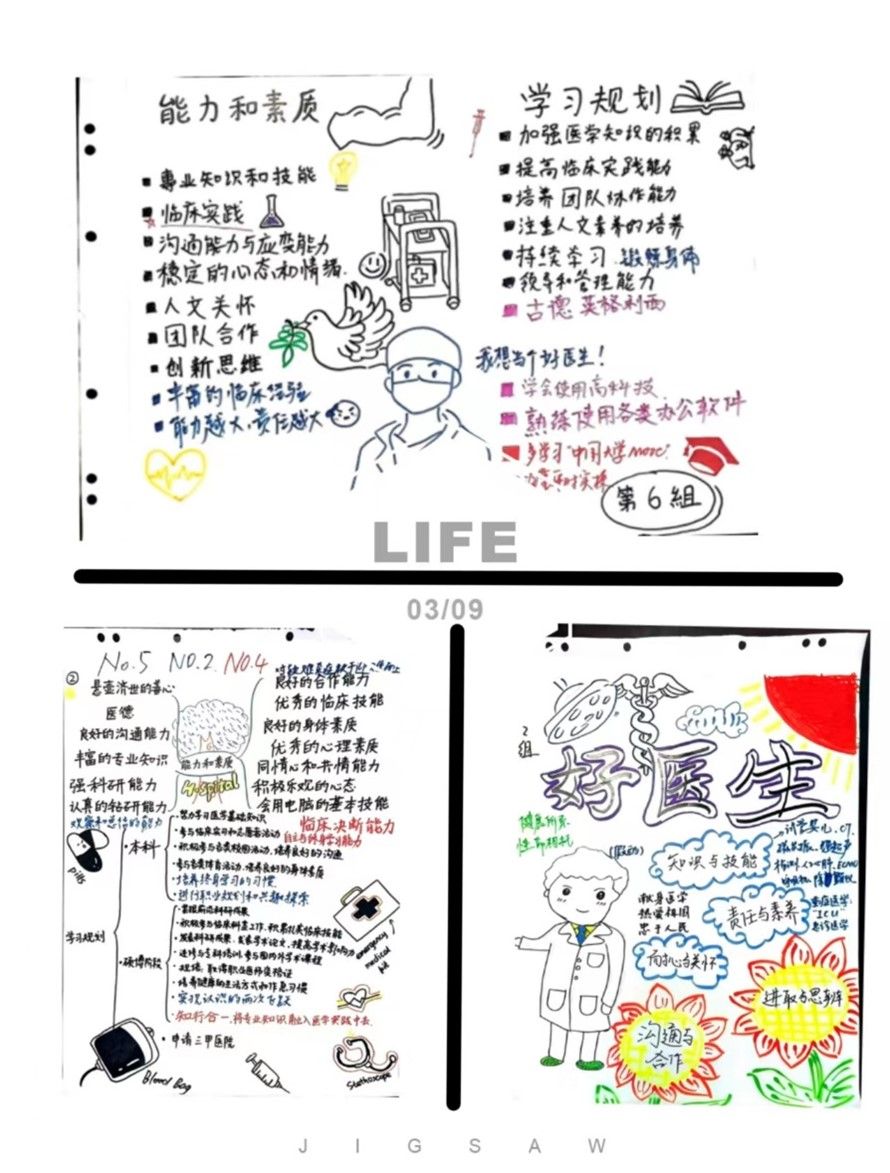 能力和素质
专业知识和技能
临床实践
沟通能力与应变能力
稳定的心态和情绪.
人文关怀
团队合作
创新思维
丰富的临床经验
能力越大,责任越大
学习规划
加强医学知识的积累
提高临床实践能力
培养团队协作能力
注重人文素养的培养
持续学习 锻炼身体
领导和管理能力
古德 英格利西
我想当个好医生!
学会使用高科技
熟练使用各类办公软件
多学习"中国大学MOOC"
第6組
LIFE
03/09
No.5 NO.2 NO.4
②
悬壶济世的善心
医德
良好的沟通能力
丰富的专业知识
强科研能力
认真的钻研能力
能力和素质
Hospital
良好的合作能力
优秀的临床技能
良好的身体素质
优秀的心理素质
同情心和共情能力
积极乐观的心态
会用电脑的基本技能
临床决断能力
自主与终身学习能力
学习规划
本科
努力学习医学基础知识
参与临床实习和志愿者活动
积极参与各类校园活动,培养良好的沟通
参与各类体育活动,培养良好的身体素质
培养终身学习的习惯
进行职业规划和兴趣探索
硕博阶段
掌握前沿科研成果
积极参与临床科室工作,积累扎实临床技能
发表科研成果,发表学术论文,提高学术影响力
进修与专科培训,参与国内外学术课程
规培,取得职业医师资格证
培养健康的生活方式和作息习惯
实现认识的两次飞跃
知行合一,将专业知识融入医学实践中去.
申请三甲医院
pills
emergency medical kit
Blood Bag
Stethoscope
2组
好医生
健康所系
性命相托
知识与技能
献身医学
热爱祖国
忠于人民
责任与素养
重症医学:
ICU
急诊医学
同理心与关怀
进取与思辨
沟通与
合作
JIGSAW